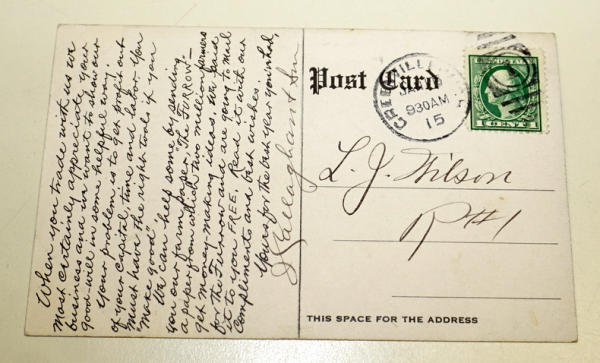 When you trade with us we
most certainly appreciate your
business and we want to show our
good-will in some helpful way.
Your problem is to get profit out
of your capital, time and labor. You
must have the right tools if you
"make good".
We can help some by sending
you our farm paper, "The FURROW"-
a paper from which two million farmers
get money-making ideas. We paid
for the Furrow and are going to mail
it to you FREE. Read it with our
compliments and best wishes.
Yours for the best year you've had,
J Callaghan & Son
Post Card
930AM
15
1 CENT 1
L. J. Wilson
R#1
THIS SPACE FOR THE ADDRESS